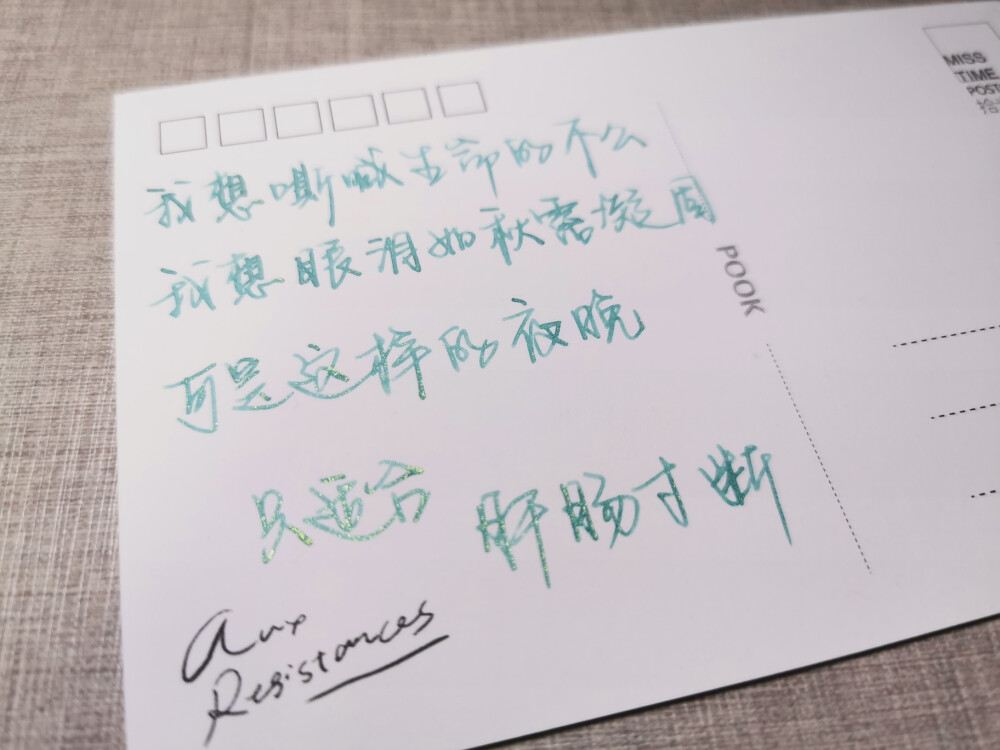 我想嘶喊生命的不公
我想眼泪如秋露凝固
可是这样的夜晚
只适合 肝肠寸断
Aux
Resistances
POOK
MISS
TIME
POST